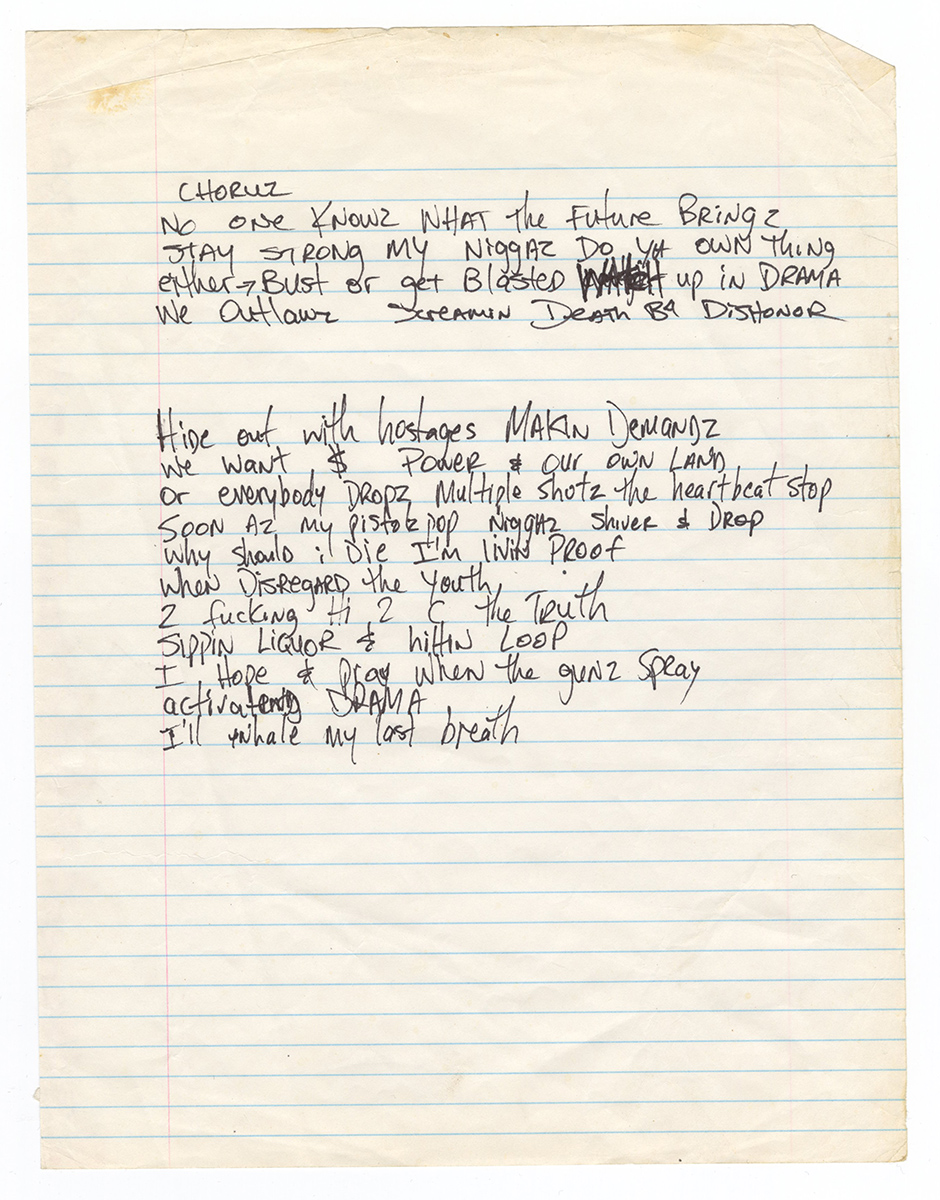 CHORUZ
No one Knowz WHAT the Future Bringz
STAY STRONG MY Niggaz Do YA OWN THING
either → Bust or get Blasted up in DRAMA
We Outlawz Screamin Death B4 DISHONOR
Hide out with hostages MAKIN Demandz
We want $ Power & our own LAND
or everybody Dropz Multiple shotz the heartbeat stop
Soon Az my pistolz pop Niggaz shiver & Drop
why should i Die I'm livin Proof
when DISREGARD the youth
2 fucking Hi 2 C the Truth
Sippin Liquor & hittin Loop
I Hope & pray when the gunz spray
DRAMA
I'll inhale my last breath